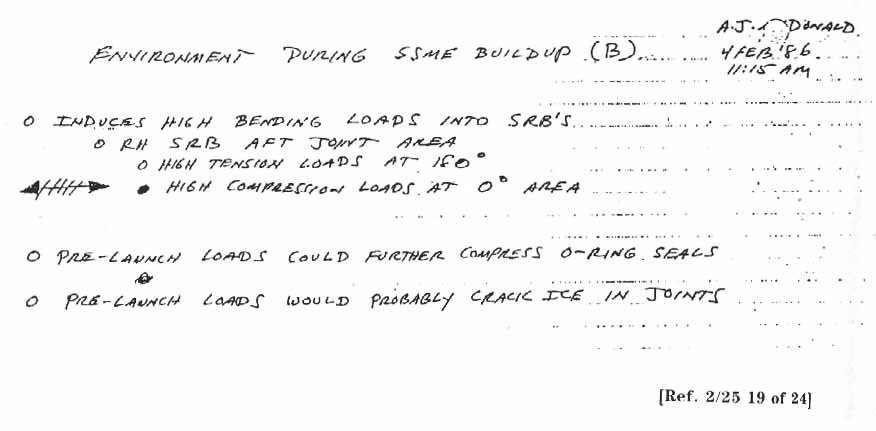 A.J. McDONALD
ENVIRONMENT DURING SSME BUILDUP (B)
4 FEB '86
11:15 AM
O INDUCES HIGH BENDING LOADS INTO SRB'S
O RH SRB AFT JOINT AREA
O HIGH TENSION LOADS AT 180°
● HIGH COMPRESSION LOADS AT 0° AREA
O PRE-LAUNCH LOADS COULD FURTHER COMPRESS O-RING SEALS
O PRE-LAUNCH LOADS WOULD PROBABLY CRACK ICE IN JOINTS
[Ref. 2/25 19 of 24]